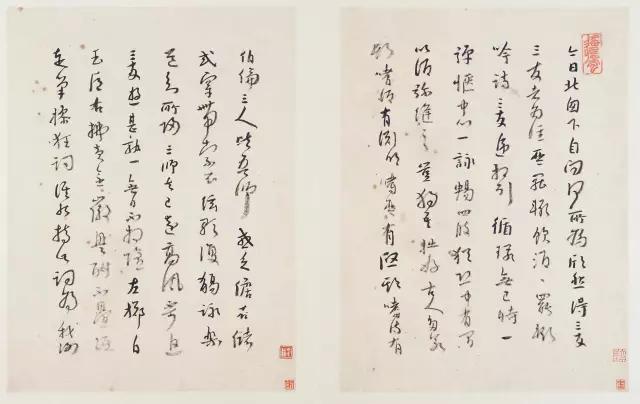 今日北窗下自問何所為欣然得三友
三友者為誰琴罷輒飲酒〻罷輒
吟詩三友遞相引循環無已時一
彈愜中心一詠暢四肢猶恐中有間
以酒彌縫之豈獨吾拙好古人多若
斯嗜酒有淵明嗜琴有啟期嗜酒有
伯倫三人皆吾師或乏儋石儲
或穿帶索衣弦歌復觴詠樂
道知所歸三師去已遠高風不可追
三友游甚熟無日不相隨左擲白
玉卮右拂黃金徽興酣不疊紙
走筆操狂詞誰能持此詞為我謝